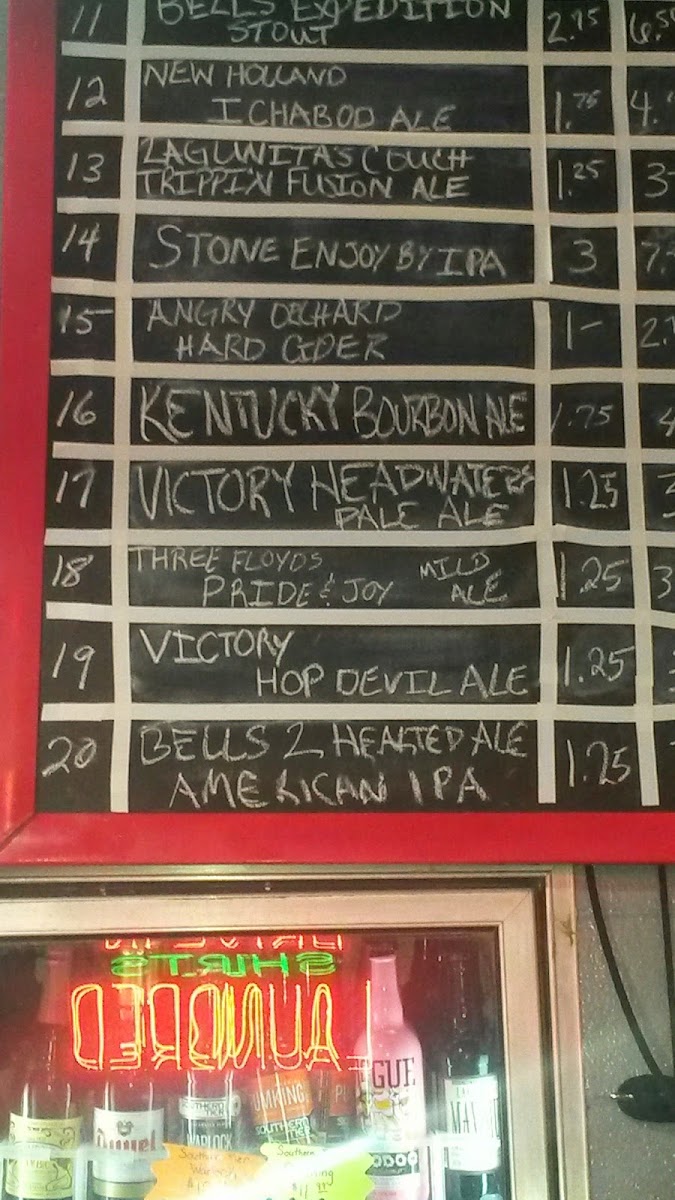 11 BELLS EXPEDITION 2.75 6.50
STOUT
12 NEW HOLLAND 1.75 4.
ICHABOD ALE
13 LAGUNITAS COUCH 1.25 3-
TRIPPIN FUSION ALE
14 STONE ENJOY BY IPA 3 7.
15 ANGRY ORCHARD 1- 2.
HARD CIDER
16 KENTUCKY BOURBON ALE 1.75 4
17 VICTORY HEADWATERS 1.25 3
PALE ALE
18 THREE FLOYDS MILD 1.25 3
PRIDE & JOY ALE
19 VICTORY 1.25
HOP DEVIL ALE
20 BELLS 2 HEARTED ALE 1.25
AMERICAN IPA
SHIRTS
LAUNDRED
GUE
Duvel
SOUTHERN TIER
WARLOCK
UMKING
SOUTHERN TIER
Southern Tier
Warlock